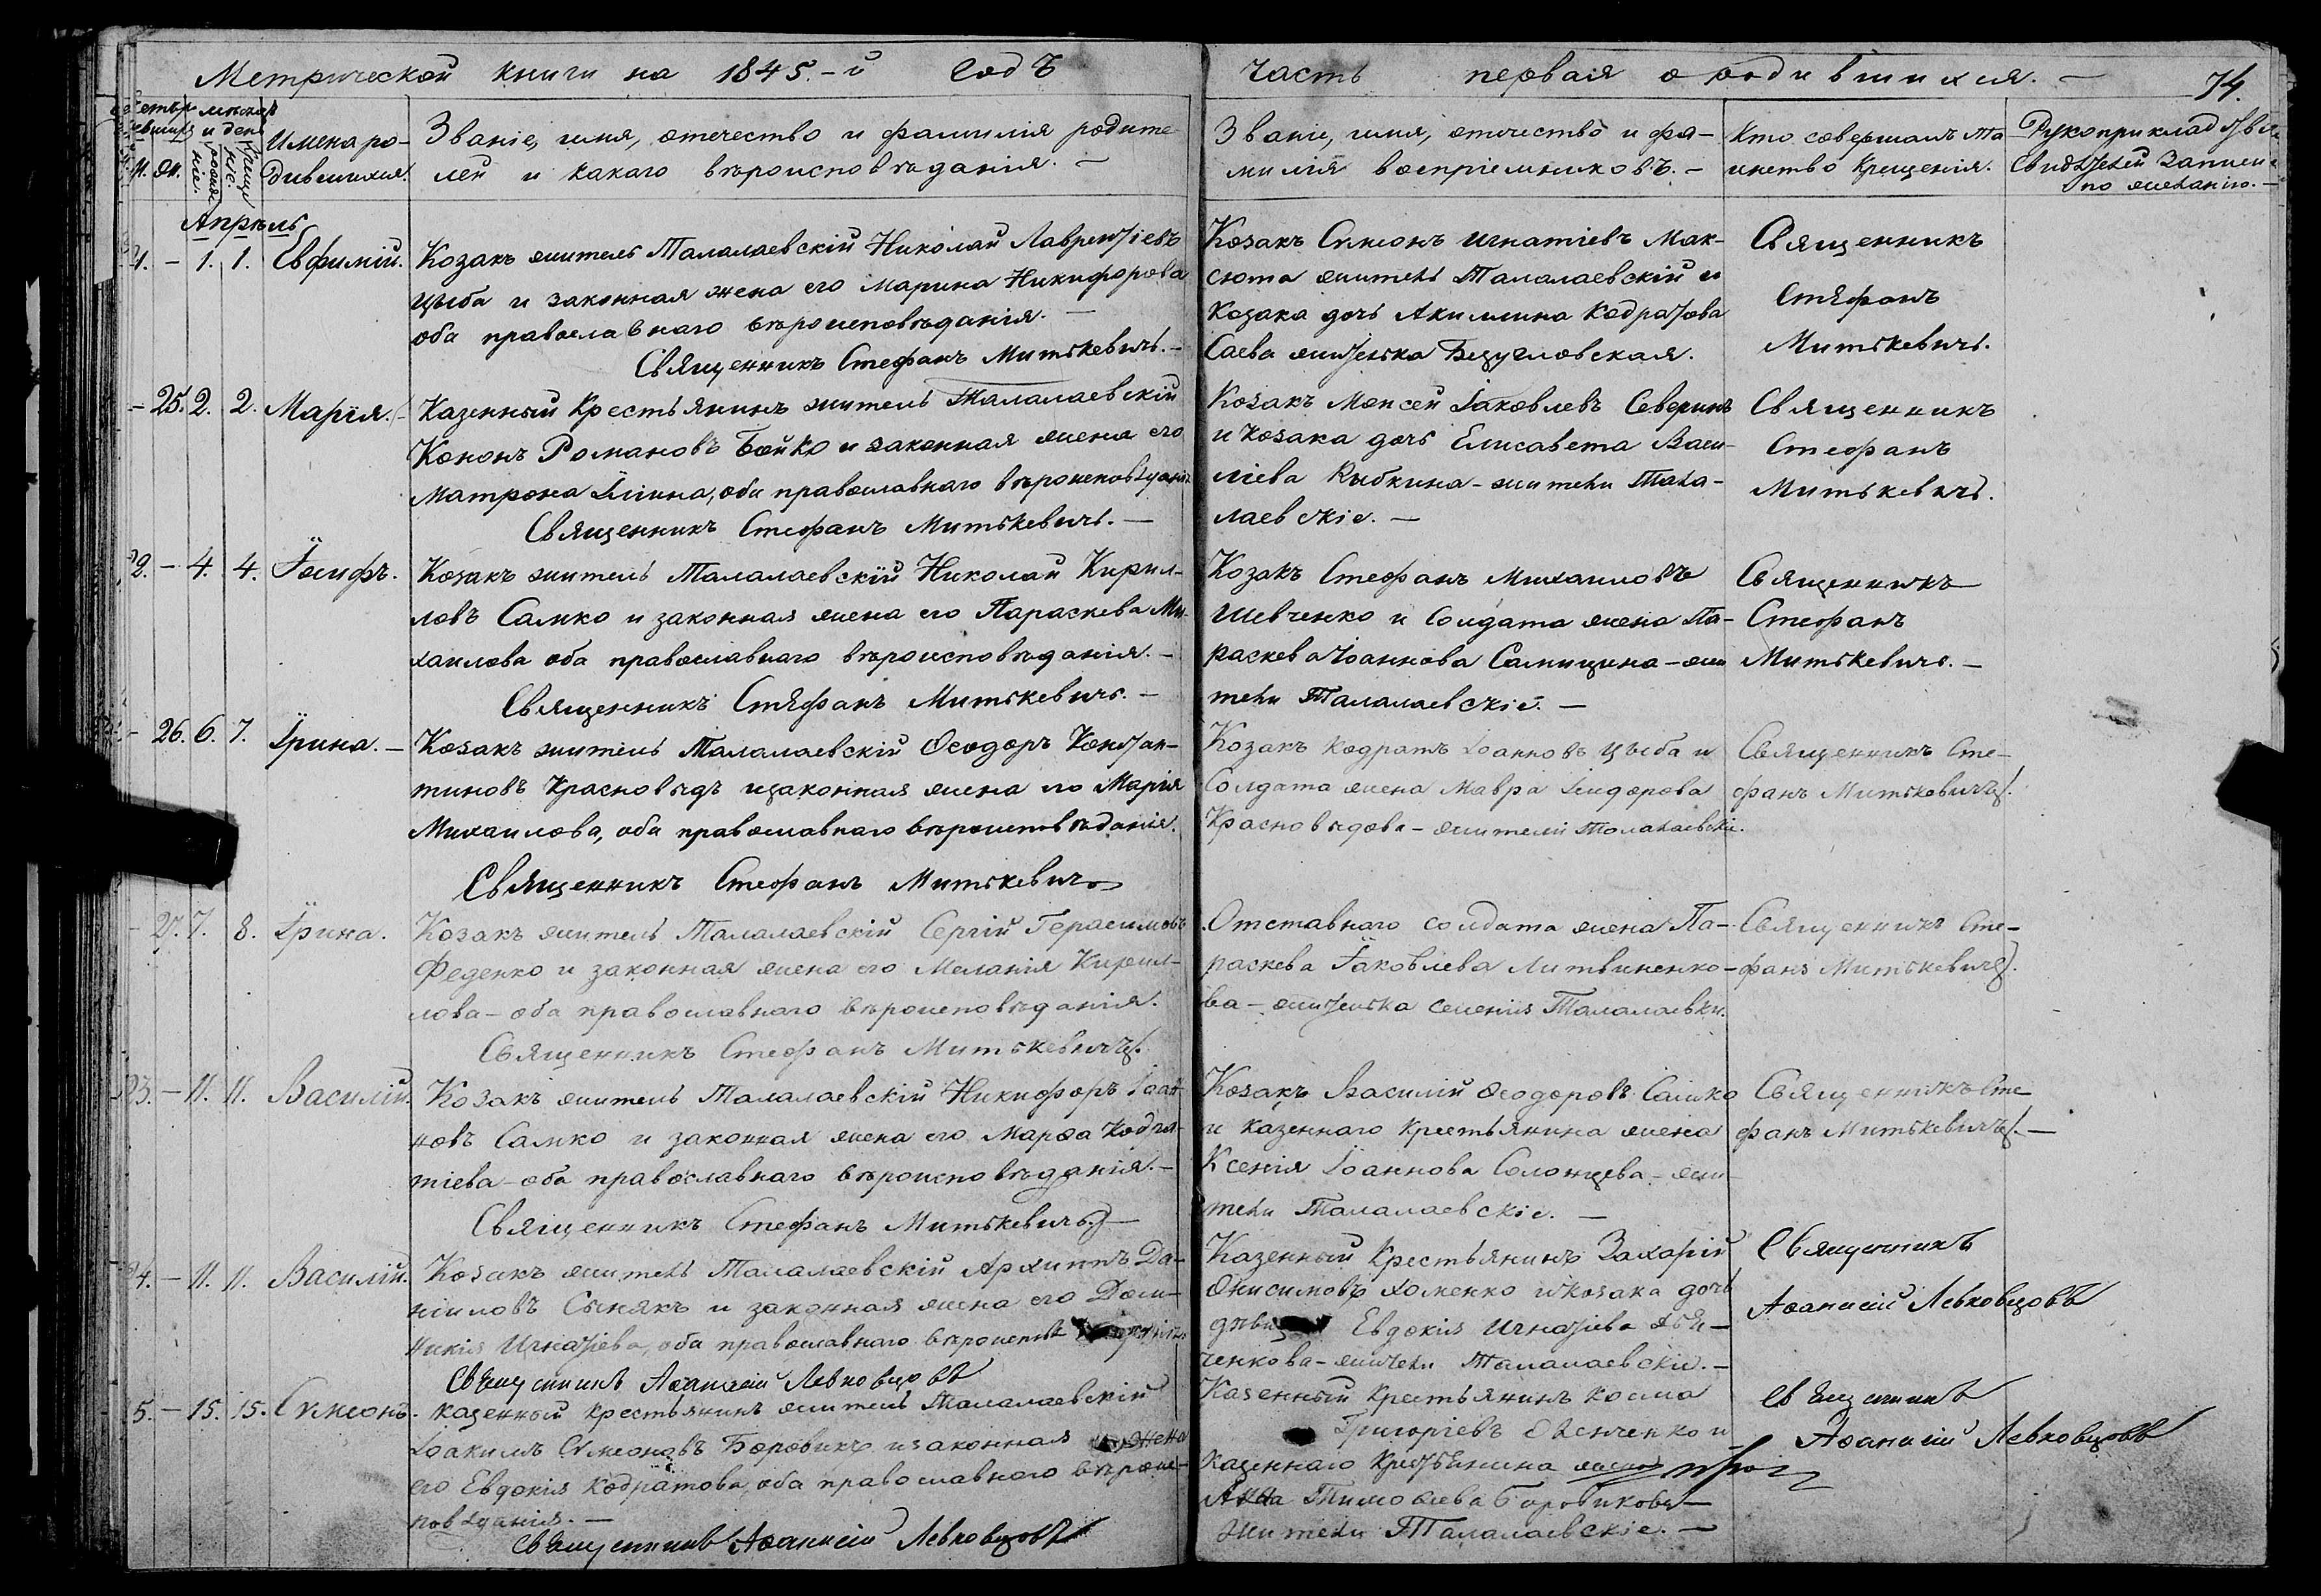 Метрической книги на 1845.-й годъ
часть первая о родившихся. —
74.
Имена ро-
дившихся.
Званіе, имя, отечество и фамилія родите
лей и какаго вѣроисповѣданія. —
Званіе, имя, отечество и фа-
милія воспріемниковъ. —
Кто совершалъ та
инство крещенія.
Рукоприкладство
свидѣтелей записи
по желанію. —
Апрѣль
1. 1. Евфимій.
Козакъ житель Талалаевскій Николай Лаврентіевъ
Цыба и законная жена его Марина Никифорова
оба православнаго вѣроисповѣданія. —
Священникъ Стефанъ Митькевичъ. —
Козакъ Сѵмеонъ Игнатіевъ Мак-
сюта житель Талалаевскій и
козака дочь Акилина Кодратова
Саева жителька Безугловская.
Священникъ
Стефанъ
Митькевичъ.
— 25. 2. 2. Марія. —
Казенный крестьянинъ житель Талалаевскій
Кононъ Романовъ Бойко и законная жена его
Матрона Іліина, оба православнаго вѣроисповѣданія
Священникъ Стефанъ Митькевичъ. —
Козакъ Моисей Іаковлевъ Северинъ
и козака дочь Елисавета Васи-
ліева Рыбкина - жители Тала-
лаевскіе. —
Священникъ
Стефанъ
Митькевичъ.
— 4. 4. Іосифъ.
Козакъ житель Талалаевскій Николай Кирил-
ловъ Самко и законная жена его Параскева Ми-
хаилова оба православнаго вѣроисповѣданія. —
Священникъ Стефанъ Митькевичъ. —
Козакъ Стефанъ Михаиловъ
Шевченко и солдата жена Па-
раскева Іоаннова Самицина - жи
тели Талалаевскіе. —
Священникъ
Стефанъ
Митькевичъ. —
— 26. 6. 7. Ірина. —
Козакъ житель Талалаевскій Ѳеодоръ Констан-
тиновъ Красновѣдъ и законная жена его Марія
Михаилова, оба православнаго вѣроисповѣданія.
Священникъ Стефанъ Митькевичъ
Козакъ Кодратъ Іоанновъ Цыба и
солдата жена Мавра Ісидорова
Красновѣдова - жители Талалаевскіе.
Священникъ Сте-
фанъ Митькевичъ.
— 27. 7. 8. Ірина.
Козакъ житель Талалаевскій Сергій Герасимовъ
Феденко и законная жена его Меланія Кирил-
лова - оба православнаго вѣроисповѣданія.
Священникъ Стефанъ Митькевичъ.
Отставнаго солдата жена Па-
раскева Іаковлева Литвиненко-
ва - жителька селенія Талалаевки.
Священникъ Сте-
фанъ Митькевичъ.
— 11. 11. Василій.
Козакъ житель Талалаевскій Никифоръ Іоан-
новъ Самко и законная жена его Марѳа Кодра-
тіева - оба православнаго вѣроисповѣданія. —
Священникъ Стефанъ Митькевичъ. —
Козакъ Василій Ѳеодоровъ Самко
и казеннаго крестьянина жена
Ксенія Іоаннова Солонцева - жи
тели Талалаевскіе. —
Священникъ Сте
фанъ Митькевичъ. —
— 11. 11. Василій.
Козакъ житель Талалаевскій Архиппъ Да-
ніиловъ Сынякъ и законная жена его Дом-
никія Игнатіева, оба православнаго
Священникъ Аѳанасій Левковцовъ
Казенный крестьянинъ Захарій
Онисимовъ Хоменко и козака дочь
Евдокія Игнатіева
ченкова - жители Талалаевскіе. —
Священникъ
Аѳанасій Левковцовъ
— 15. 15. Сѵмеонъ.
Казенный крестьянинъ житель Талалаевскій
Іоакимъ Сѵмеоновъ Боровикъ и законная жена
его Евдокія Кодратова, оба православнаго вѣроис-
повѣданія. —
Священникъ Аѳанасій Левковцовъ
Казенный крестьянинъ Косма
Григоріевъ и
казеннаго крестьянина
Анна Тимоѳеева Боровикова —
жители Талалаевскіе. —
Священникъ
Аѳанасій Левковцовъ